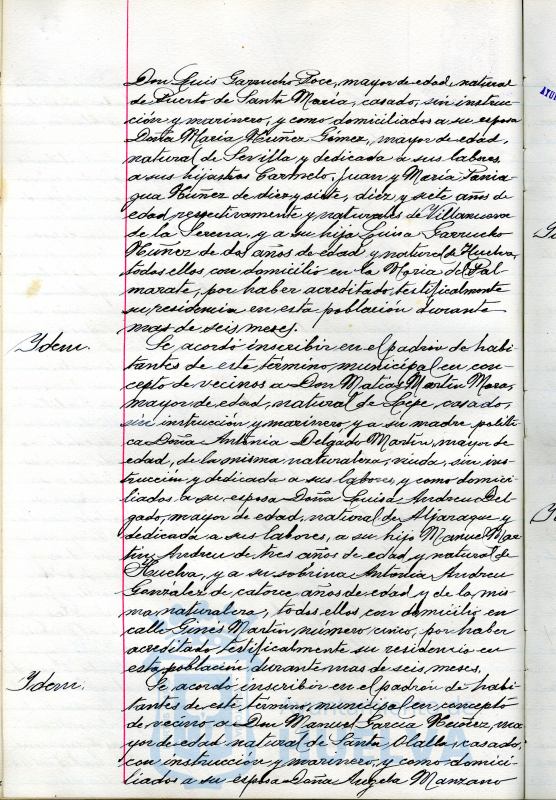 Don Luis Garrucho Poce, mayor de edad, natural
de Puerto de Santa María, casado, sin instruc-
ción y marinero, y como domiciliados a su esposa
Doña María Núñez Gómez, mayor de edad,
natural de Sevilla y dedicada a sus labores,
a sus hijastros Carmelo, Juan y María Pania-
gua Núñez de diez y siete, diez y siete años de
edad respectivamente y naturales de Villanueva
de la Serena, y a su hija Luisa Garrucho
Núñez de dos años de edad y natural de Huelva,
todos ellos con domicilio en la Noria de Pal-
marate, por haber acreditado testificalmente
su residencia en esta población durante
mas de seis meses.
Idem. Se acordó inscribir en el padrón de habi-
tantes de este término municipal en con-
cepto de vecinos a Don Matías Martín Mora,
mayor de edad, natural de Lepe, casado,
sin instrucción y marinero, y a su madre políti-
ca Doña Antonia Delgado Martín, mayor de
edad, de la misma naturaleza, viuda, sin ins-
trucción y dedicada a sus labores, y como domici-
liados a su esposa Doña Luisa Andreu Del-
gado, mayor de edad, natural de Aljaraque y
dedicada a sus labores, a su hijo Manuel Mar-
tín Andreu de tres años de edad y natural de
Huelva, y a su sobrina Antonia Andreu
González de catorce años de edad y de la mis-
ma naturaleza, todos ellos con domicilio en
calle Ginés Martín, número cinco, por haber
acreditado testificalmente su residencia en
esta población durante mas de seis meses.
Idem. Se acordó inscribir en el padrón de habi-
tantes de este término municipal en concepto
de vecino a Don Manuel García Núñez, ma-
yor de edad, natural de Santa Olalla, casado,
con instrucción y marinero, y como domici-
liados a su esposa Doña Angela Manzano